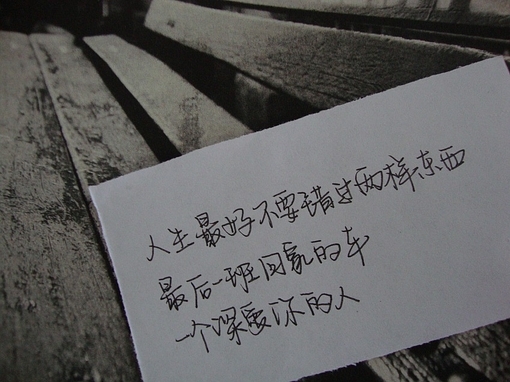 人生最好不要错过两样东西
最后一班回家的车
一个深爱你的人